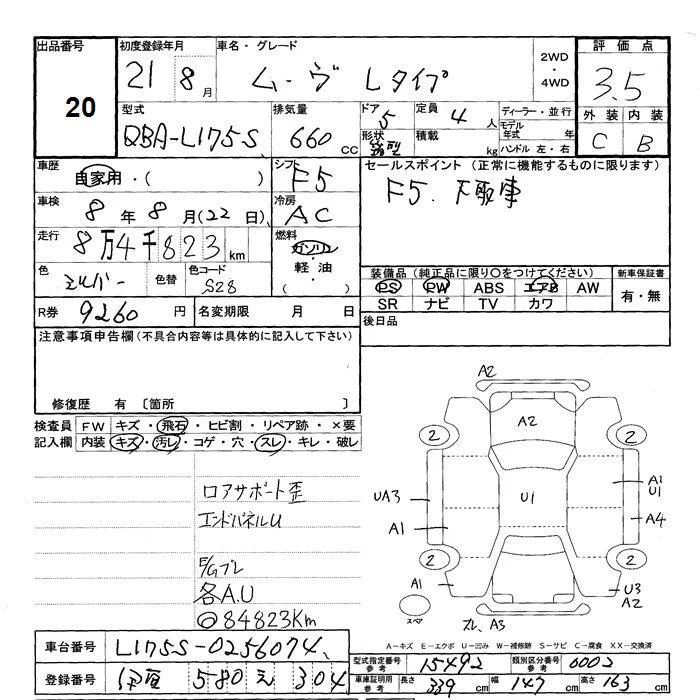 出品番号 初度登録年月 車名・グレード 2WD・4WD 評価点
20 21 8月 ムーヴ Lタイプ 3.5
型式 排気量 ドア 5 定員 4人 ディーラー・並行 外装 内装
QBA-L175S 660cc 形状 積載 kg モデル年式 年 C B
ハンドル 左・右
車歴 自家用・( ) シフト F5 セールスポイント (正常に機能するものに限ります)
車検 8年8月(22日) 冷房 AC F5.下取車
走行 8万4千823km 燃料 ガソリン・軽油・( )
色 シルバー 色替 色コード S28 装備品(純正品に限り○をつけてください) 新車保証書
PS PW ABS エアB AW 有・無
R券 9260円 名変期限 月 日 SR ナビ TV カワ
注意事項申告欄(不具合内容等は具体的に記入して下さい) 後日品
修復歴 有 〔箇所 〕
検査員 FW キズ・飛石・ヒビ割・リペア跡・×要
記入欄 内装 キズ・汚レ・コゲ・穴・スレ・キレ・破レ
A2
A2
2 2
ロアサポート歪
エンドパネルU
UA3 U1 A1 U1
A1 A4
2 2
E/Gブレ
各A.U
84823Km
A1 U3 A2
スペア スレ、A3
A-キズ E-エクボ U-凹み W-補修跡 S-サビ C-腐食 XX-交換済
車台番号 L175S-0256074
登録番号 580 え 304
型式指定番号 参考 15492 類別区分番号 参考 0002
車庫証明用 参考 長さ 339cm 幅 147cm 高さ 163cm